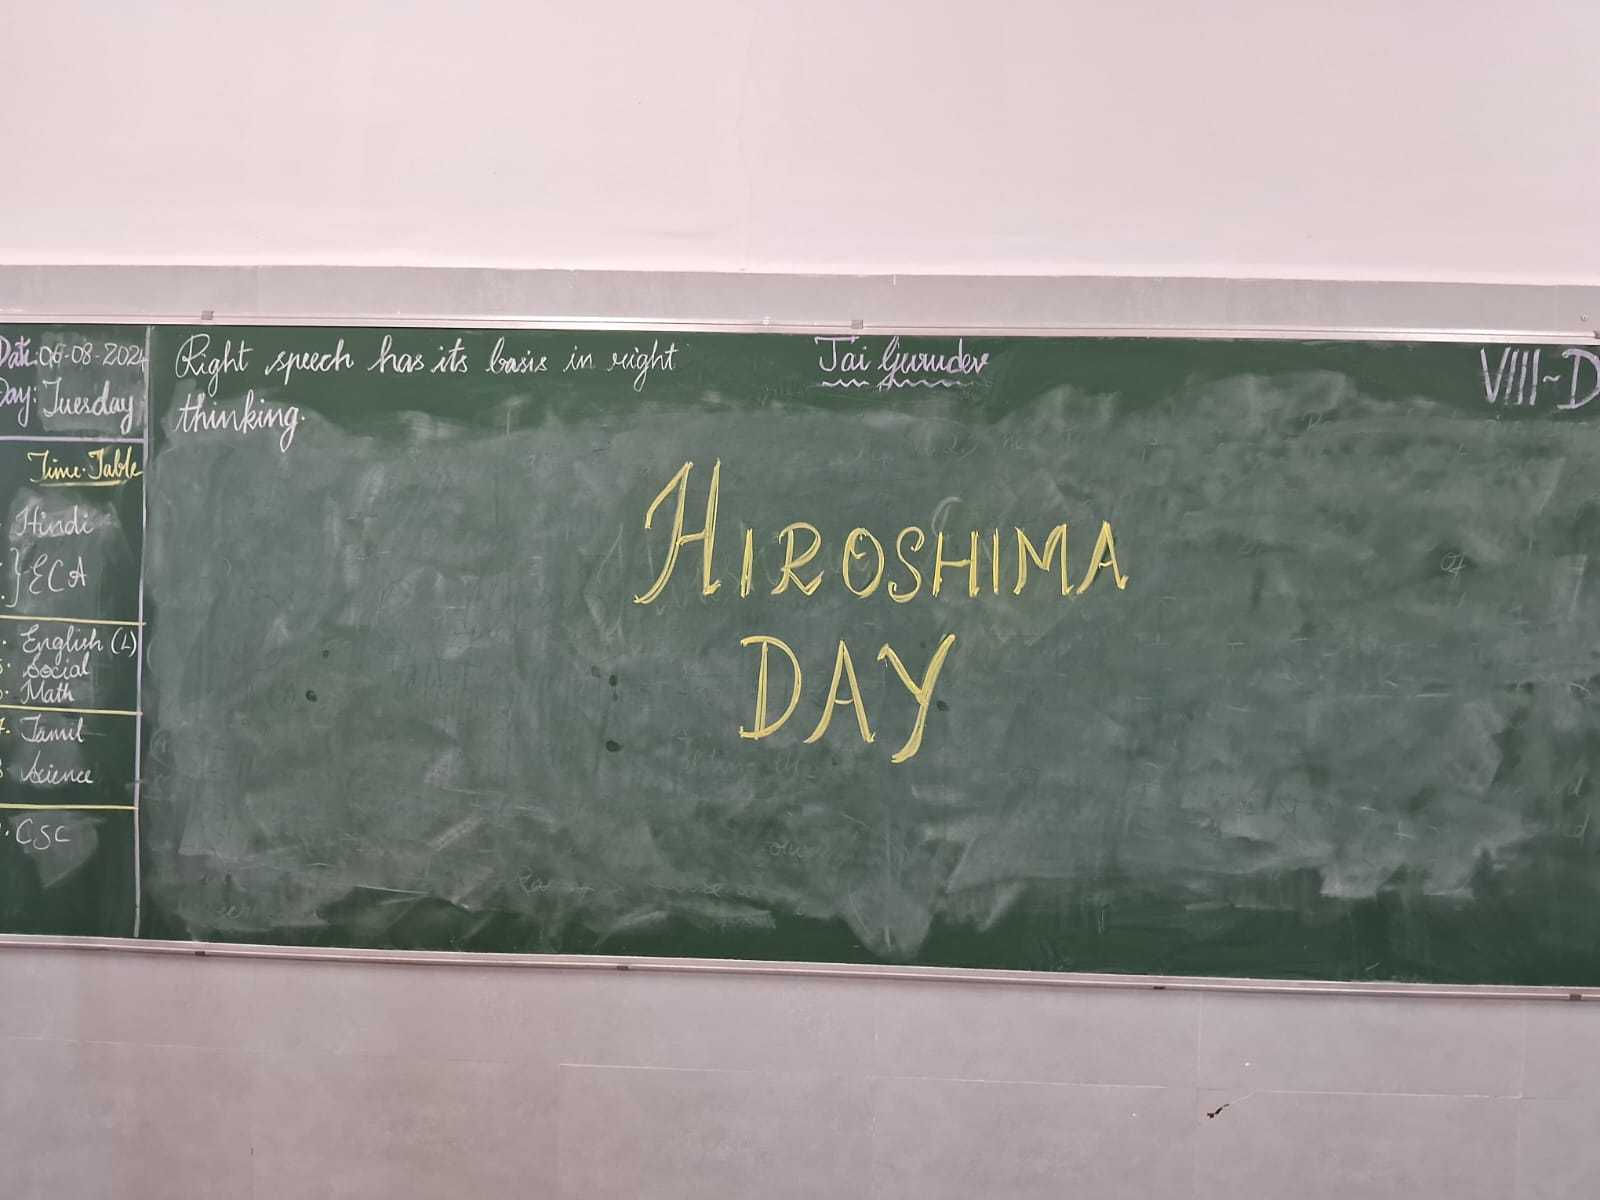 Date: 06-08-2024
Day: Tuesday
Right speech has its basis in right
thinking.
Jai Gurudev
VIII-D
Time-Table
Hindi
} ECA
English (L)
Social
Math
7. Tamil
8 Science
CSC
HIROSHIMA
DAY